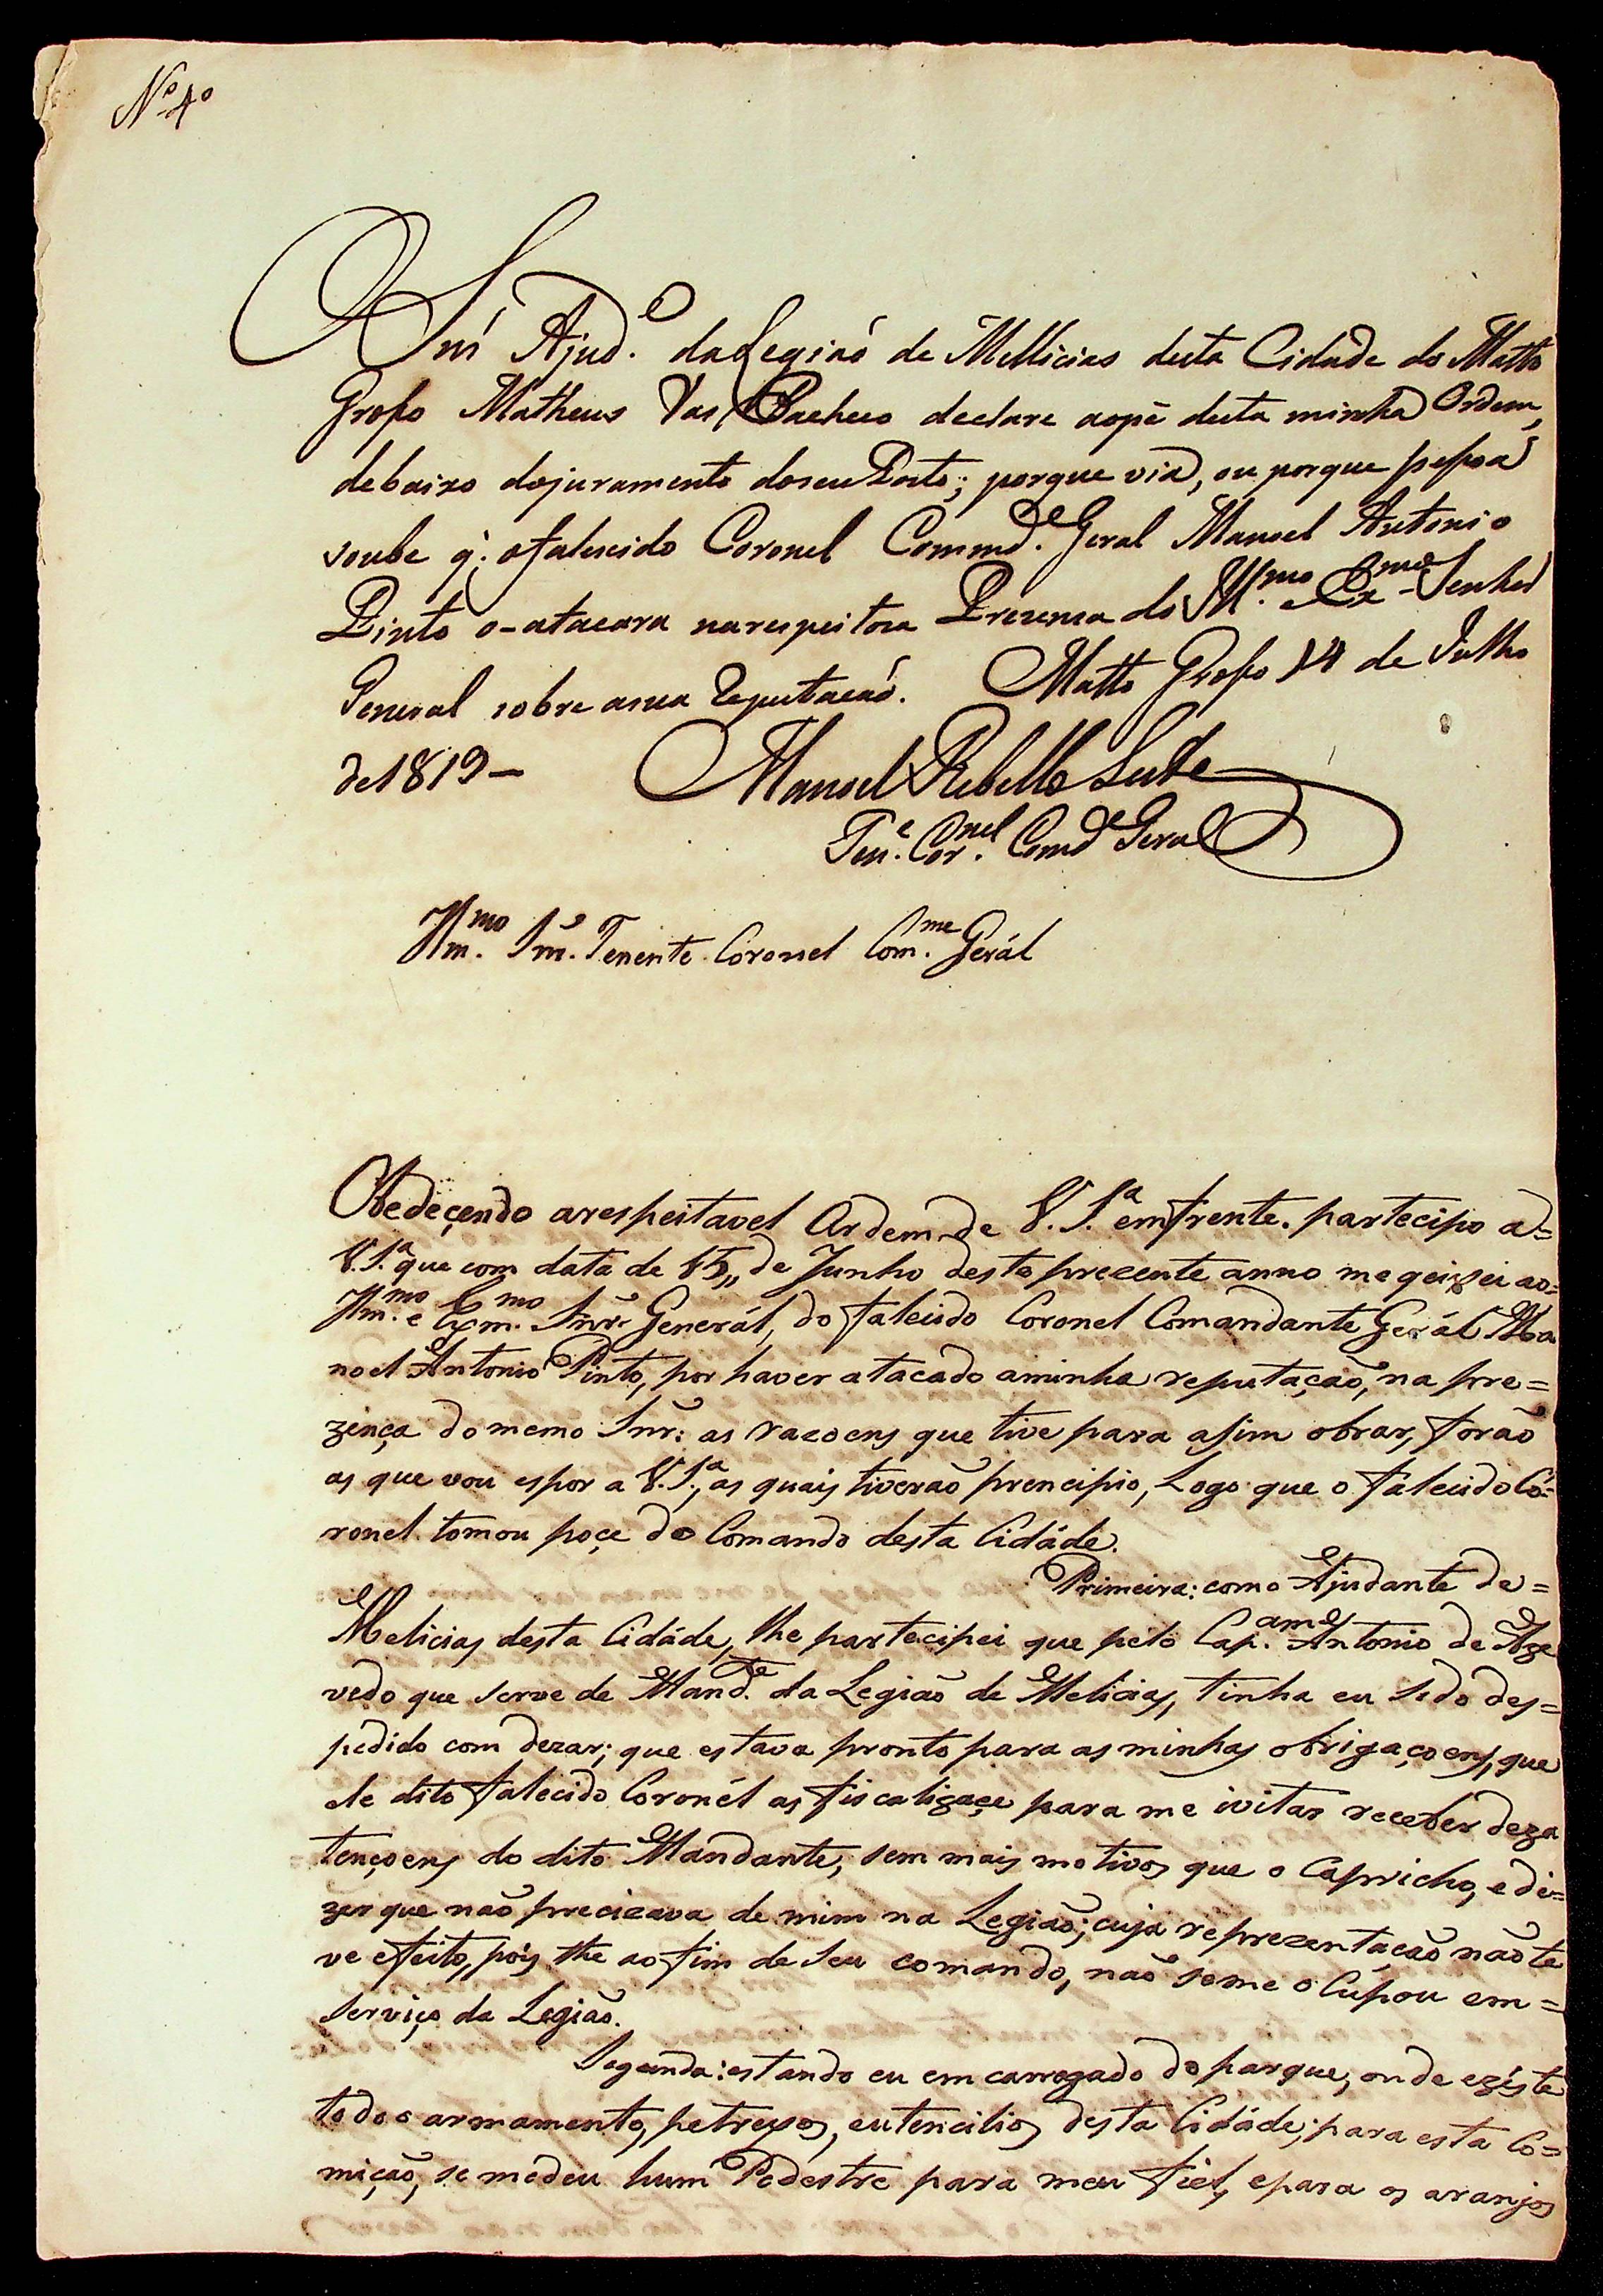 Nº 4º
O Snr Ajud.e da Legiaó de Mellicias desta Cidade do Matto
Groso Matheus Vas Pacheco declare aopé desta minha Ordem,
debaixo dojuramento doseu Posto; porque via, ou porque pesoa
soube q̃. ofalescido Coronel Commd.e Geral Manoel Antonio
Pinto o-atacara narespeitosa Prezensa do Ill.mo e Ex.mo Senhor
General sobre asua Reputacaó. Matto Groso 14 de Julho
de 1819-
Manoel Rebello Leite
Ten.e Cor.nel Comd.e Geral
Ilm.mo Sñr. Tenente Coronel Com.me Gerál
Obedeçendo arespeitavel Ordem de V. S.ª emfrente. partecipo a=
V. S.ª que com data de 15,, de Junho deste prezente anno me qeixei ao=
Ilm.mo e Exm.mo Snr. Generál, do falecido Coronel Comandante Gerál Ma
noel Antonio Pinto, por haver atacado aminha reputação, na pre=
zença do memo Snr: as razoens que tive para asim obrar, forão
as que vou espor a V. S.ª, as quais tiverão prencipio, Logo que o falecido Co=
ronel tomou poçe do Comando desta Cidáde.
Primeira: como Ajudante de=
Melicias desta Cidáde, lhe partecipei que pelo Cap.am Antonio de Aze
vedo que serve de Mand.te da Legião de Melicias, tinha eu sido des=
pedido com dezar; que estava pronto para as minhas obrigaçoens, que
ele dito falecido Coronél as fiscalizaçe para me ivitar receber deza
tençoens do dito Mandante, sem mais motivos que o Capricho, e di=
zer que não precizava de mim na Legião; cuja reprezentação não te
ve efeito, pois the ao fim de seu comando, não some oCupou em=
serviço da Legião.
Segunda: estando eu emcarregado do parque, onde ezíste
todo o armamento, petrexos, eutencilios desta Cidáde; para esta Co=
mição, se medeu hum Pedestre para meu fiel, epara os aranjos